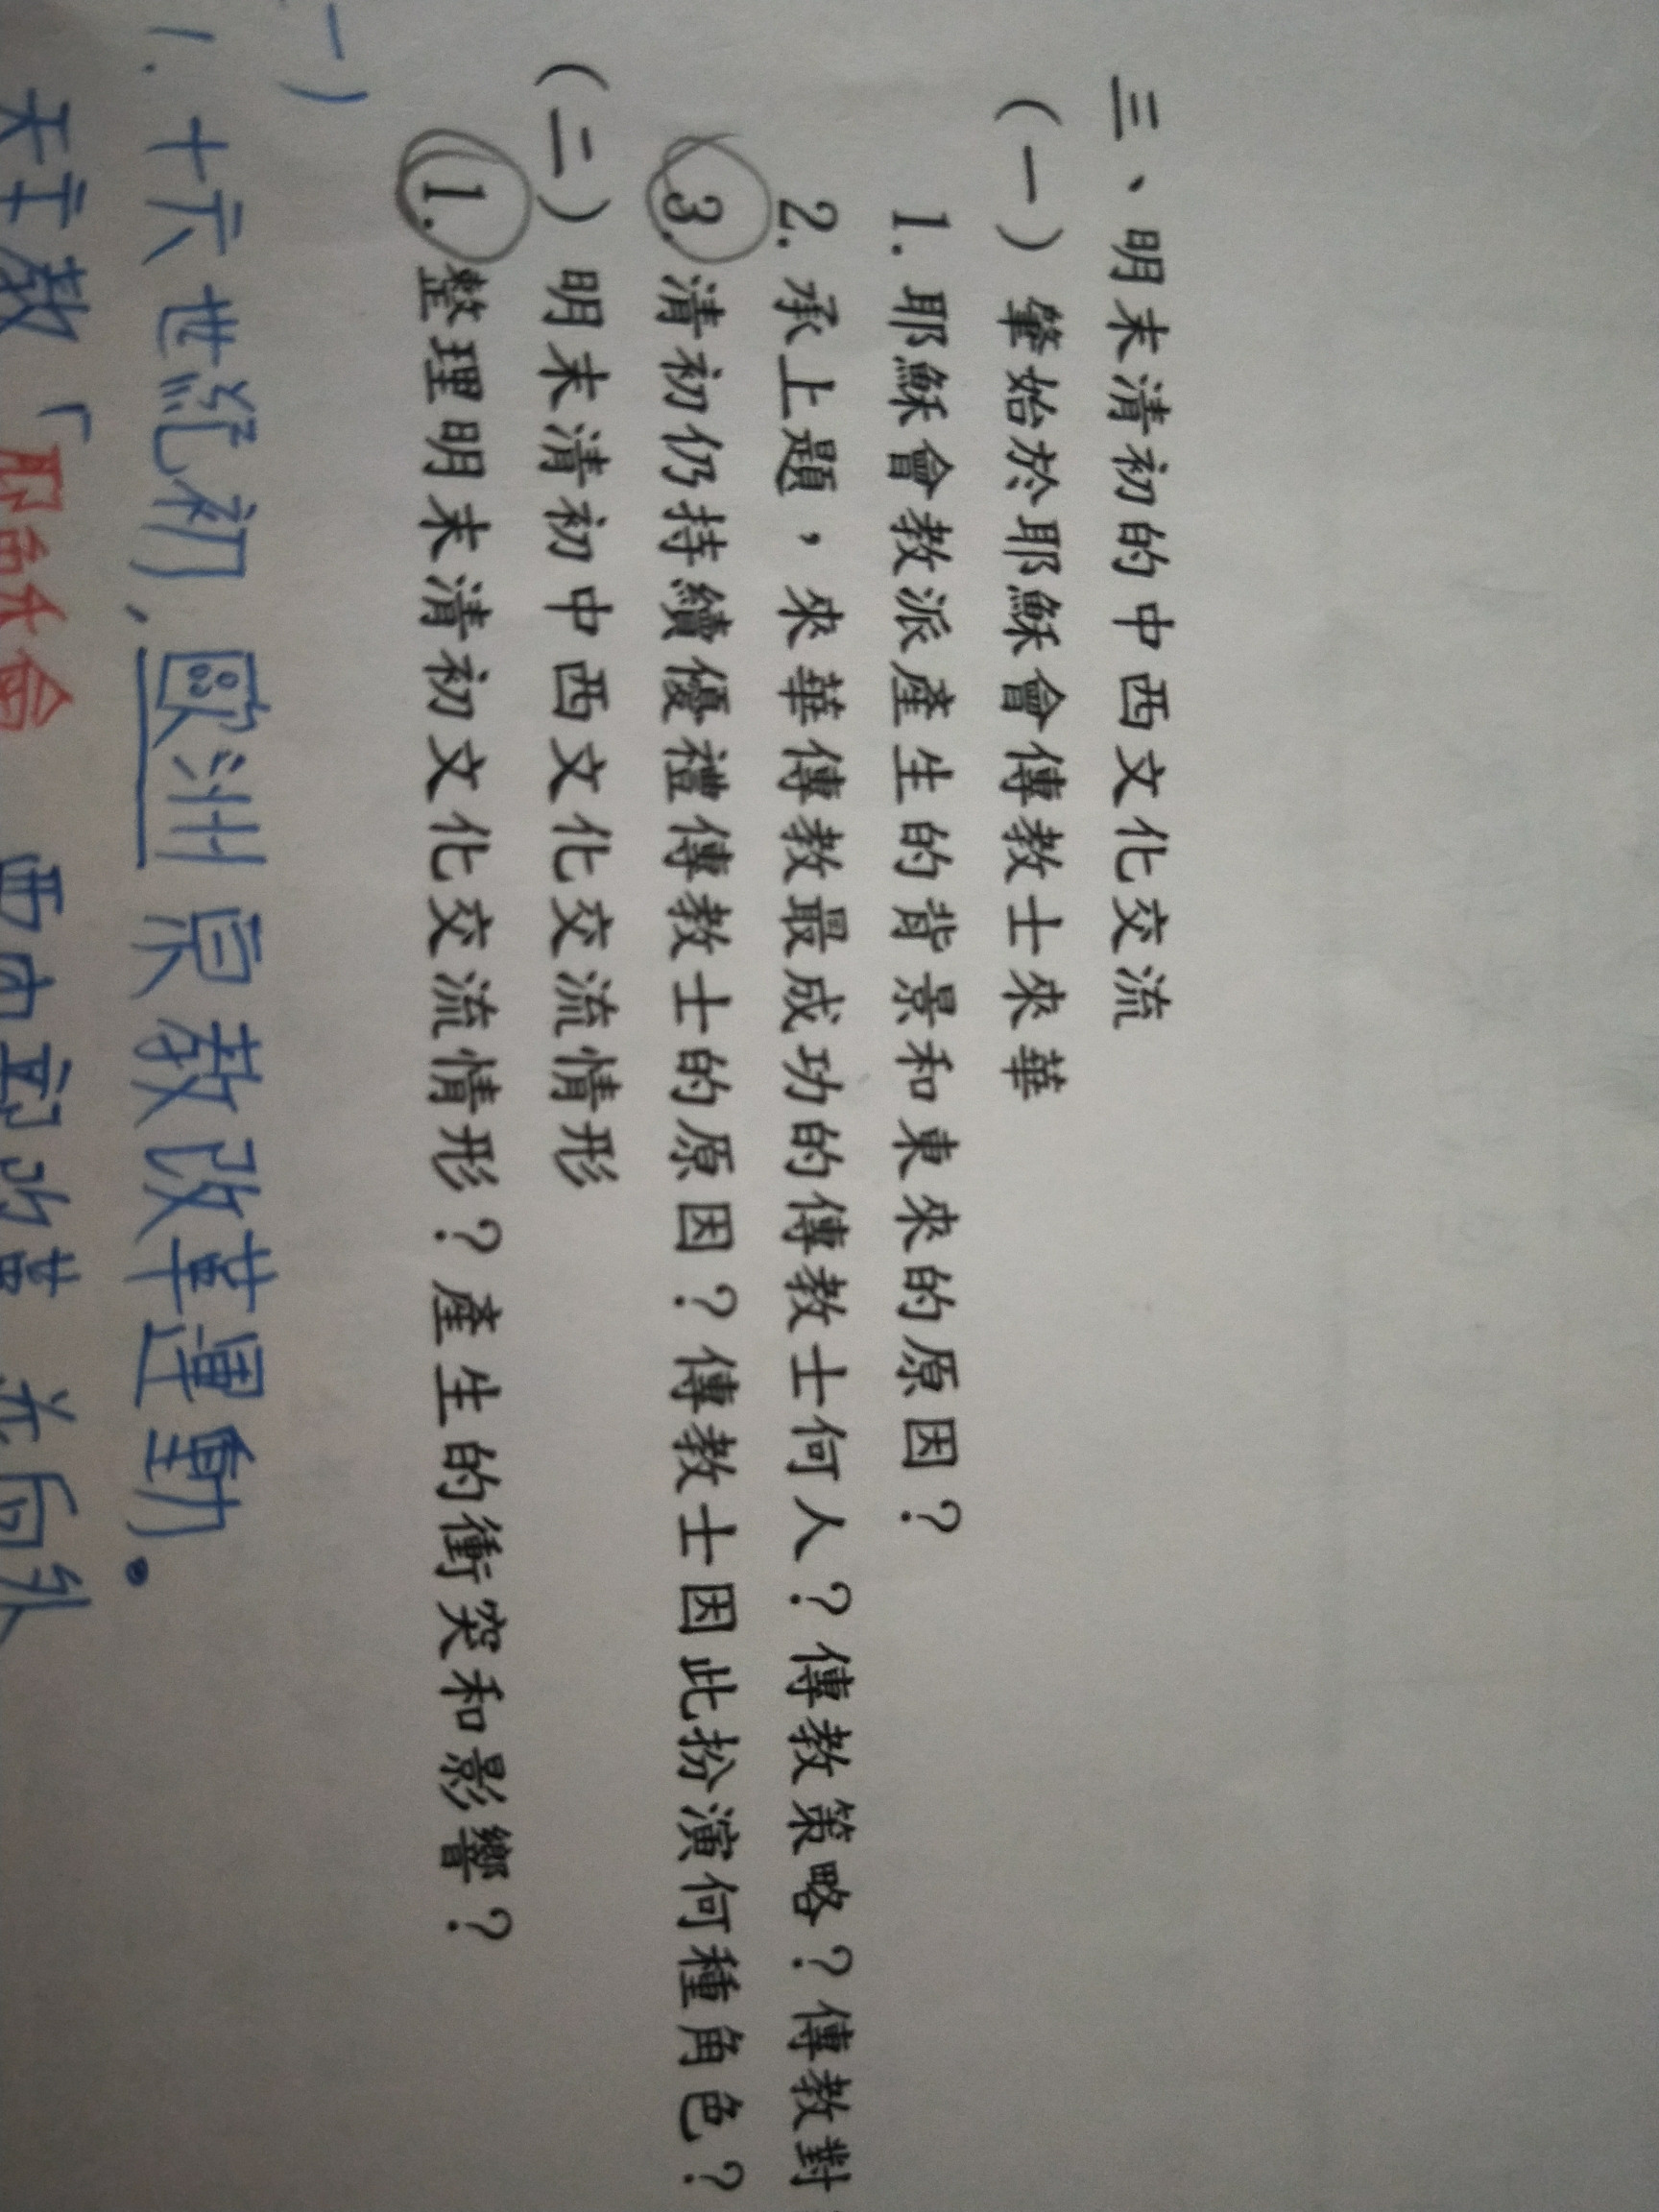 三、明末清初的中西文化交流
（一）肇始於耶穌會傳教士來華
1. 耶穌會教派產生的背景和東來的原因？
2. 承上題，來華傳教最成功的傳教士何人？傳教策略？傳教對
3. 清初仍持續優禮傳教士的原因？傳教士因此扮演何種角色？
（二）明末清初中西文化交流情形
1. 整理明末清初文化交流情形？產生的衝突和影響？
一）
1. 十六世紀初，歐洲宗教改革運動。
天主教「耶穌會 西內部改革 並向外